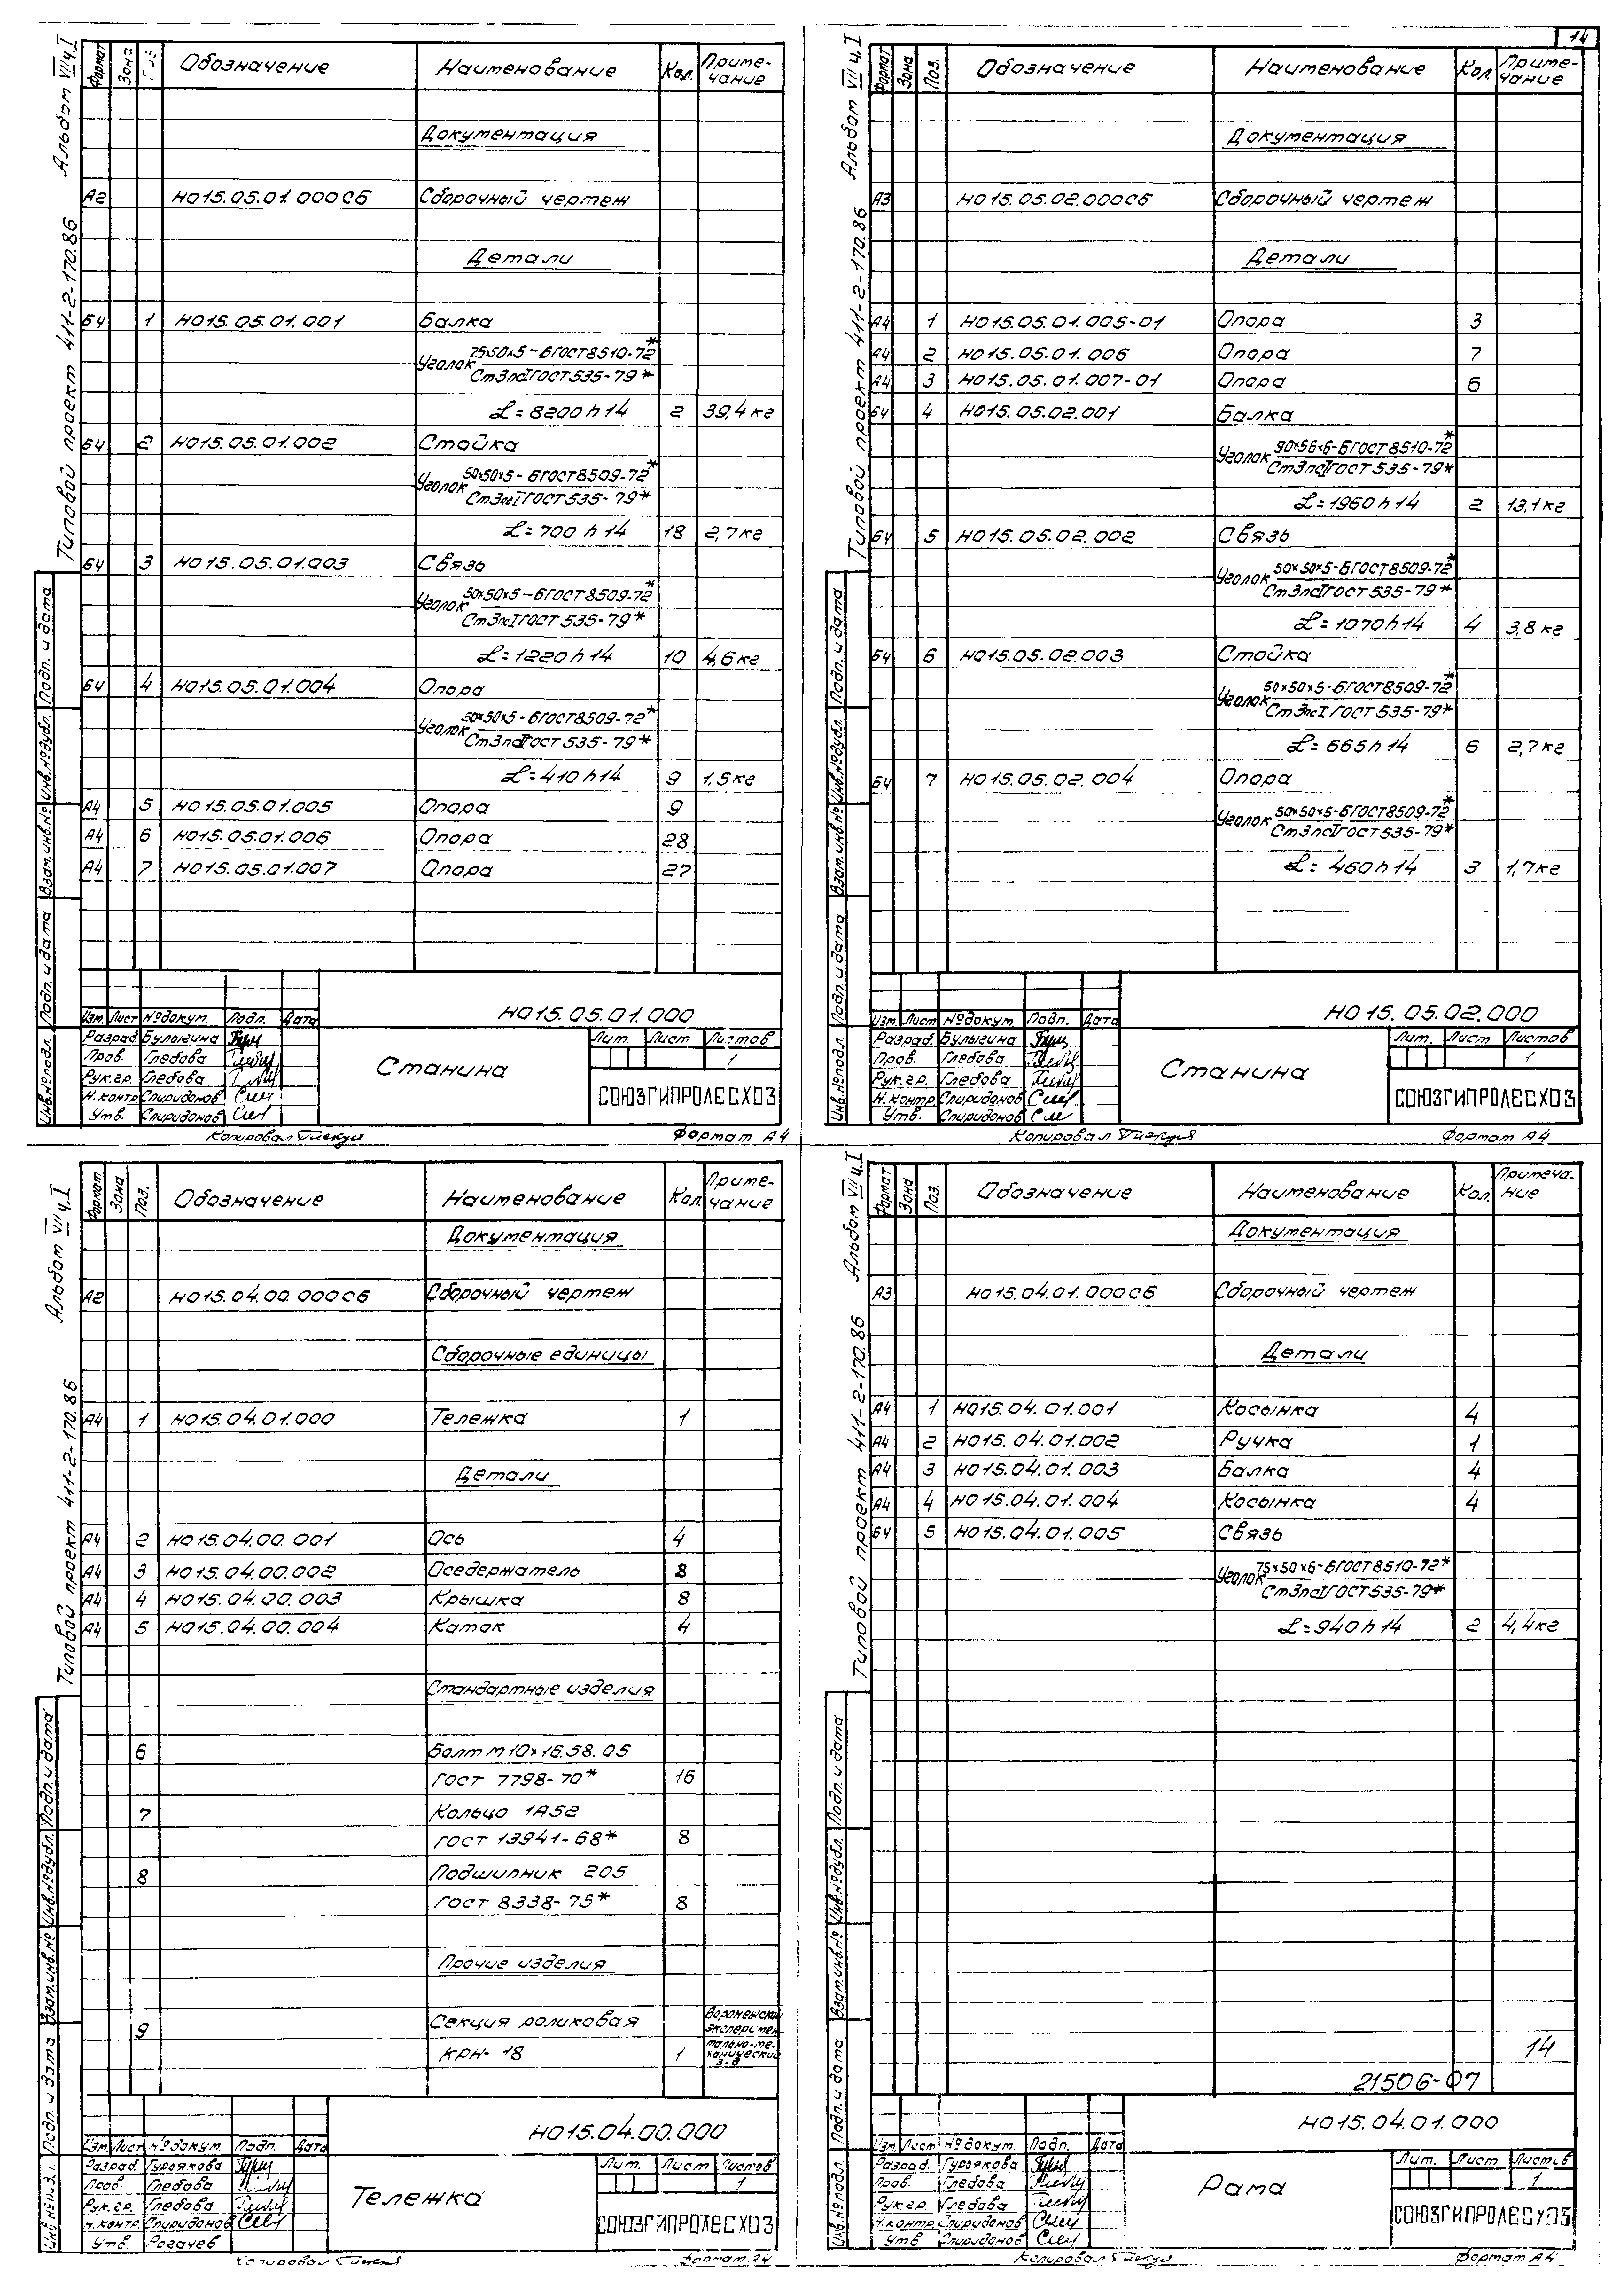 Альбом VII ч.I
Типовой проект 411-2-170.86
Формат Зона Обозначение Наименование Кол. Примечание
Документация
А2 НО15.05.01.000СБ Сборочный чертеж
Детали
БЧ 1 НО15.05.01.001 Балка
Уголок 75х50х5-БГОСТ8510-72*
Ст3псIГОСТ535-79*
L=8200h14 2 39,4кг
БЧ 2 НО15.05.01.002 Стойка
Уголок 50х50х5-БГОСТ8509-72*
Ст3псIГОСТ535-79*
L=700h14 18 2,7кг
БЧ 3 НО15.05.01.003 Связь
Уголок 50х50х5-БГОСТ8509-72*
Ст3псIГОСТ535-79*
L=1220h14 10 4,6кг
БЧ 4 НО15.05.01.004 Опора
Уголок 50х50х5-БГОСТ8509-72*
Ст3псIГОСТ535-79*
L=410h14 9 1,5кг
А4 5 НО15.05.01.005 Опора 9
А4 6 НО15.05.01.006 Опора 28
А4 7 НО15.05.01.007 Опора 27
Инв.№подл. Подп. и дата Взам.инв.№ Инв.№дубл. Подп. и дата
НО15.05.01.000
Изм. Лист №докум. Подп. Дата
Разраб. Булыгина
Пров. Глебова
Рук.гр. Глебова
Н.контр. Спиридонов
Утв. Спиридонов
Станина
Лит. Лист Листов
1
СОЮЗГИПРОЛЕСХОЗ
Копировал
Формат А4
14
Альбом VII ч.I
Типовой проект 411-2-170.86
Формат Зона Поз. Обозначение Наименование Кол. Примечание
Документация
А3 НО15.05.02.000СБ Сборочный чертеж
Детали
А4 1 НО15.05.01.005-01 Опора 3
А4 2 НО15.05.01.006 Опора 7
А4 3 НО15.05.01.007-01 Опора 6
БЧ 4 НО15.05.02.001 Балка
Уголок 90х56х6-БГОСТ8510-72*
Ст3псIГОСТ535-79*
L=1960h14 2 13,1кг
БЧ 5 НО15.05.02.002 Связь
Уголок 50х50х5-БГОСТ8509-72*
Ст3псIГОСТ535-79*
L=1070h14 4 3,8кг
БЧ 6 НО15.05.02.003 Стойка
Уголок 50х50х5-БГОСТ8509-72*
Ст3псIГОСТ535-79*
L=665h14 6 2,7кг
БЧ 7 НО15.05.02.004 Опора
Уголок 50х50х5-БГОСТ8509-72*
Ст3псIГОСТ535-79*
L=460h14 3 1,7кг
Инв.№подл. Подп. и дата Взам.инв.№ Инв.№дубл. Подп. и дата
НО15.05.02.000
Изм. Лист №докум. Подп. Дата
Разраб. Булыгина
Пров. Глебова
Рук.гр. Глебова
Н.контр. Спиридонов
Утв. Спиридонов
Станина
Лит. Лист Листов
1
СОЮЗГИПРОЛЕСХОЗ
Копировал
Формат А4
Альбом VII ч.I
Типовой проект 411-2-170.86
Формат Зона Поз. Обозначение Наименование Кол. Примечание
Документация
А2 НО15.04.00.000СБ Сборочный чертеж
Сборочные единицы
А4 1 НО15.04.01.000 Тележка 1
Детали
А4 2 НО15.04.00.001 Ось 4
А4 3 НО15.04.00.002 Оседержатель 8
А4 4 НО15.04.00.003 Крышка 8
А4 5 НО15.04.00.004 Каток 4
Стандартные изделия
6 Болт М10х16.58.05
ГОСТ 7798-70* 16
7 Кольцо 1А52
ГОСТ 13941-68* 8
8 Подшипник 205
ГОСТ 8338-75* 8
Прочие изделия
9 Секция роликовая
КРН-18 1
Воронежский
эксперимен-
тально-ме-
ханический
з-д
Подп. и дата Взам.инв.№ Инв.№дубл. Подп. и дата
НО15.04.00.000
Изм. Лист №докум. Подп. Дата
Разраб. Гурьякова
Пров. Глебова
Рук.гр. Глебова
Н.контр. Спиридонов
Утв. Рогачев
Тележка
Лит. Лист Листов
1
СОЮЗГИПРОЛЕСХОЗ
Копировал
Формат А4
Альбом VII ч.I
Типовой проект 411-2-170.86
Формат Зона Поз. Обозначение Наименование Кол. Примечание
Документация
А3 НО15.04.01.000СБ Сборочный чертеж
Детали
А4 1 НО15.04.01.001 Косынка 4
А4 2 НО15.04.01.002 Ручка 1
А4 3 НО15.04.01.003 Балка 4
А4 4 НО15.04.01.004 Косынка 4
БЧ 5 НО15.04.01.005 Связь
Уголок 75х50х6-БГОСТ8510-72*
Ст3псIГОСТ535-79*
L=940h14 2 4,4кг
14
21506-07
Инв.№подл. Подп. и дата Взам.инв.№ Инв.№дубл. Подп. и дата
НО15.04.01.000
Изм. Лист №докум. Подп. Дата
Разраб. Гурьякова
Пров. Глебова
Рук.гр. Глебова
Н.контр. Спиридонов
Утв. Спиридонов
Рама
Лит. Лист Листов
1
СОЮЗГИПРОЛЕСХОЗ
Копировал
Формат А4